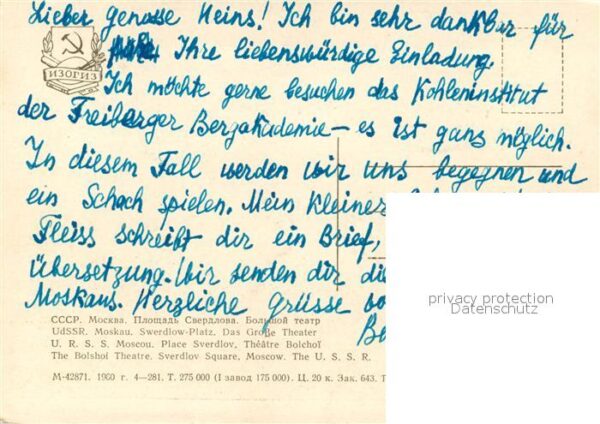 Lieber genosse Heins! Ich bin sehr dankbar für
Ihre liebenswürdige Einladung.
ИЗОГИЗ
Ich möchte gerne besuchen das Kohleninstitut
der Freiberger Bergakademie – es ist gans möglich.
In diesem Fall werden wir uns begegnen und
ein Schach spielen. Mein kleiner
Fleiss schreibt dir ein Brief,
übersetzung. Wir senden dir die
Moskaus. Herzliche grüsse
privacy protection
Datenschutz
СССР. Москва. Площадь Свердлова. Большой театр
UdSSR. Moskau. Swerdlow-Platz. Das Große Theater
U. R. S. S. Moscou. Place Sverdlov, Théâtre Bolchoï
The Bolshoi Theatre. Sverdlov Square, Moscow. The U. S. S. R.
М-42871. 1960 г. 4—281. Т. 275 000 (I завод 175 000). Ц. 20 к. Зак. 643. Т